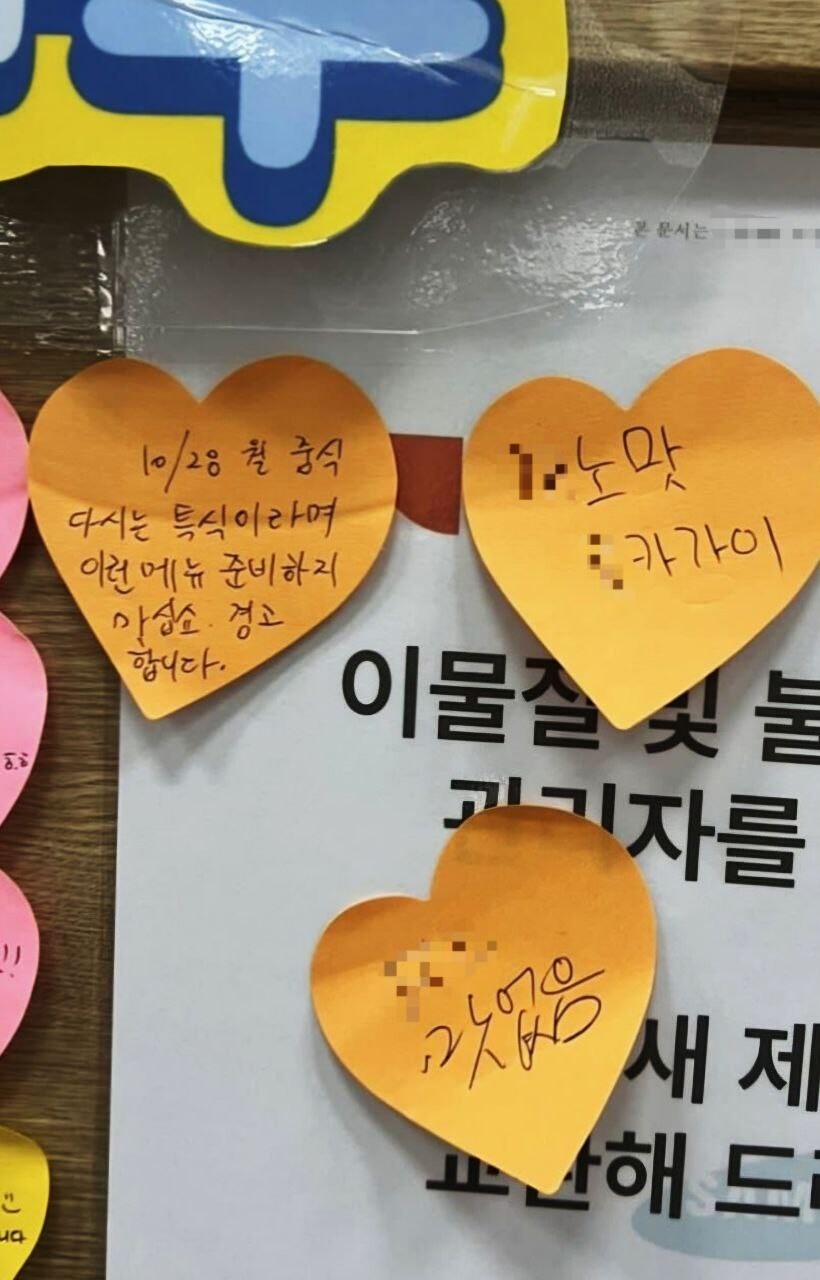 본 문서는
10/28 월 중식
다시는 특식이라며
이런 메뉴 준비하지
마십쇼. 경고
합니다.
노맛
카가이
이물질 및 불
관리자를
맛없음
새 제
교환해 드
!!
니다